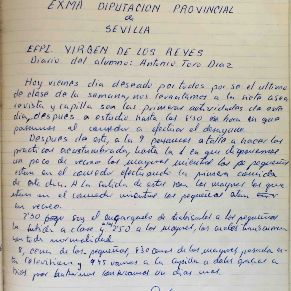 EXMA DIPUTACION PROVINCIAL
de
SEVILLA
EFPI. VIRGEN DE LOS REYES
Diario del alumno: Antonio Toro Diaz
Hoy viernes dia deseado por todos por se el ultimo
de clase de la semana, nos levantamos a la hora
revista y capilla son las primeras actividades de este
dia, despues a estudio hasta las 8'30 en que
pasamos al comedor a efectuar el desayuno
Despues de este, a las 9 pasamos a taller a hacer las
practicas acostumbradas, hasta la 1 en que disponemos
un poco de recreo los mayores mientras los pequeños
estan en el comedor efectuando la primera comida
de este dia. A la salida de estos son los mayores los que
estan en el comedor mientras los pequeños
en recreo.
2'30 soy el encargado de a los pequeños
la salida a clase y 2'50 a los mayores,
con toda normalidad.
8, cena de los pequeños, 8'30 cena de los mayores
y 9'45 vamos a la capilla a dar gracias a
Dios por un dia mas.